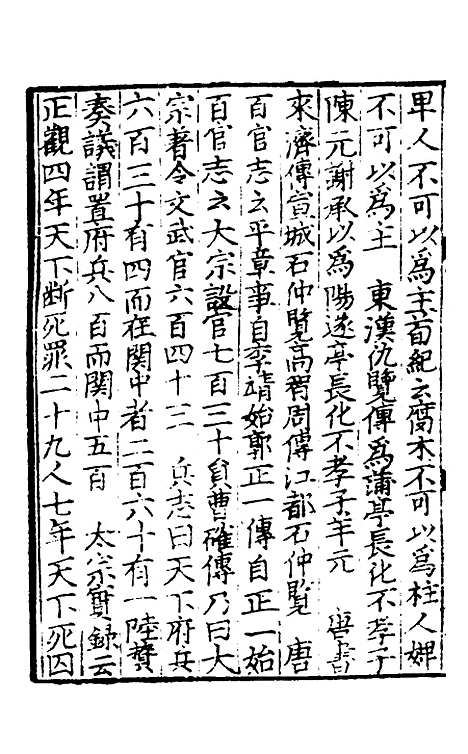 卑人不可以爲主百紀云腐木不可以爲柱人婢
不可以爲主　東漢仇覽傳爲蒲亭長化不孝子
陳元謝承以爲陽遂亭長化不孝子羊元　唐書
來濟傳宣城石仲覽高智周傳江都石仲覽　唐
百官志云平章事自李靖始郭正一傳自正一始
百官志云大宗設官七百三十貟曹確傳乃曰大
宗著令文武官六百四十三　兵志曰天下府兵
六百三十有四而在関中者二百六十有一陸贄
奏議謂置府兵八百而関中五百　太宗實録云
正觀四年天下斷死罪二十九人七年天下死囚